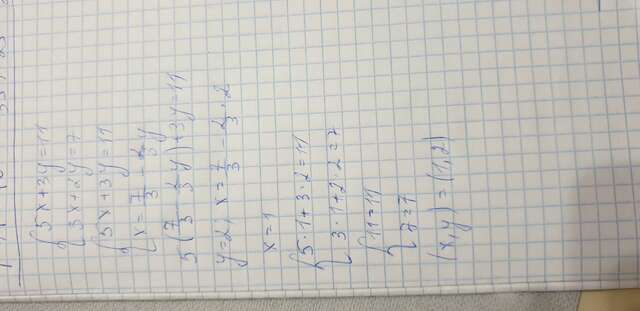 {5x+3y=11
{3x+2y=7
{5x+3y=11
{x=7/3-2/3y
5(7/3-2/3y)+3y=11
y=2; x=7/3-2/3·2
x=1
{5·1+3·2=11
{3·1+2·2=7
{11=11
{7=7
(x,y)=(1,2)